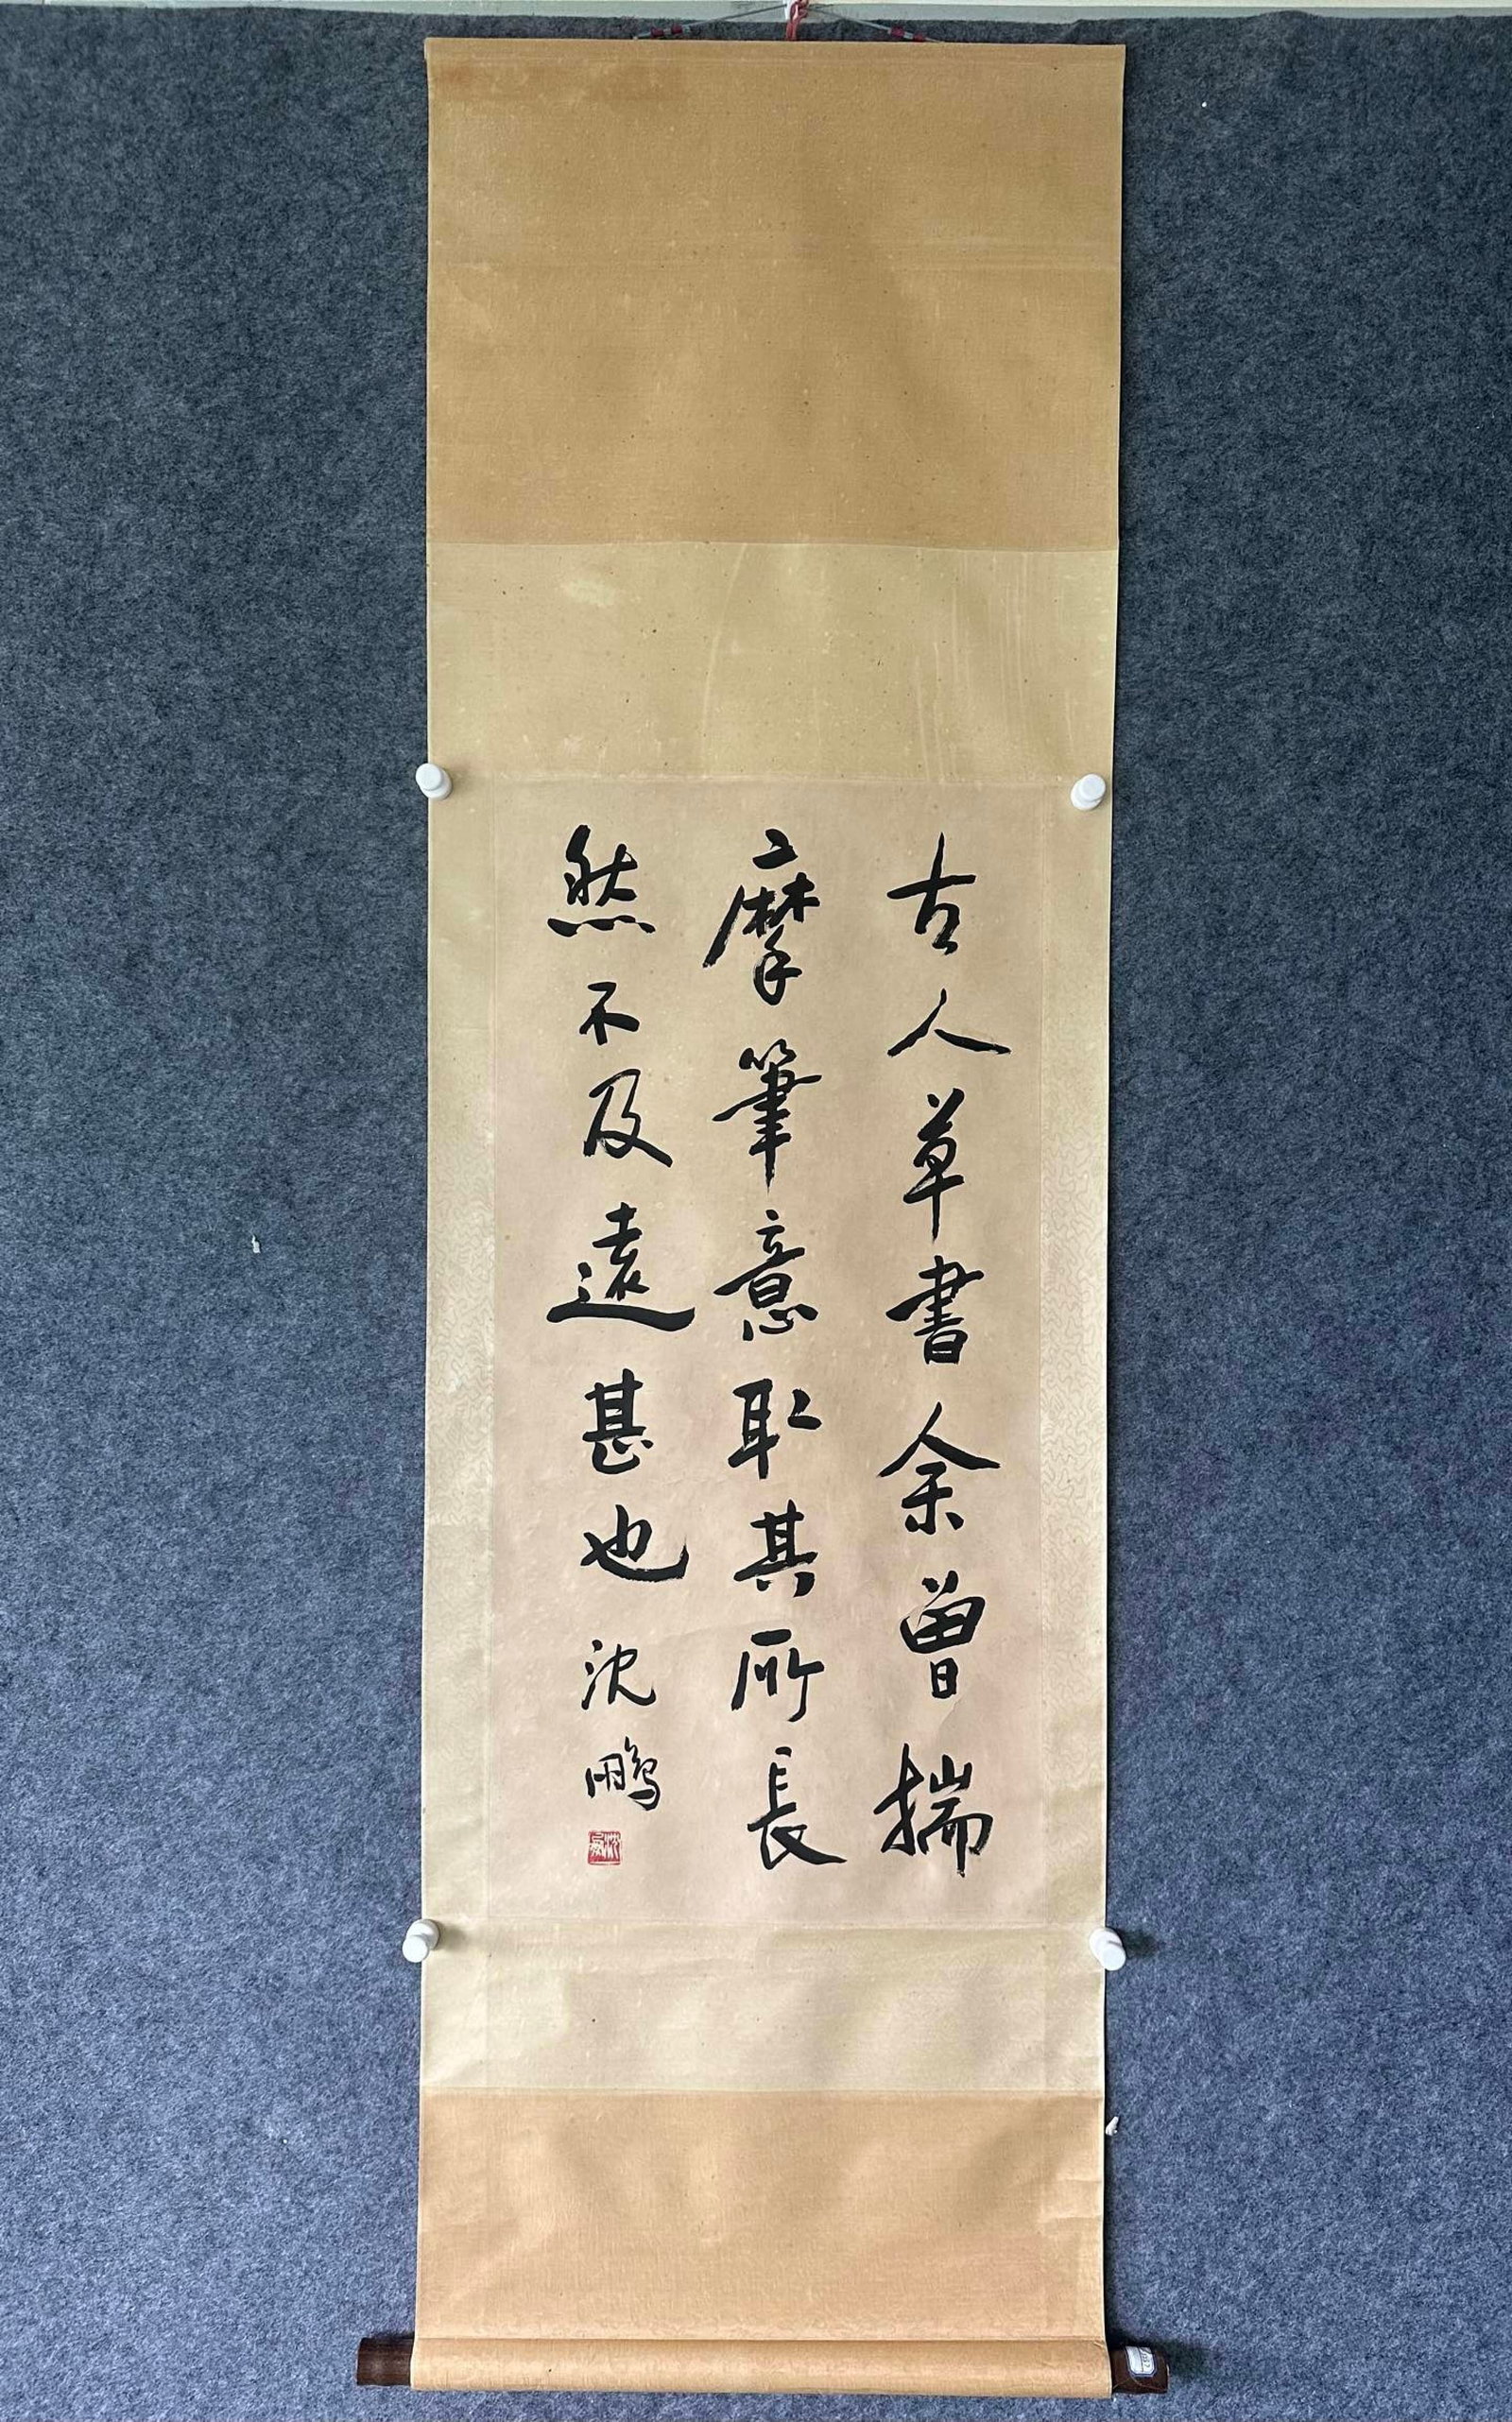 古人草書余曾揣
摩筆意取其所長
然不及遠甚也
沈鵬